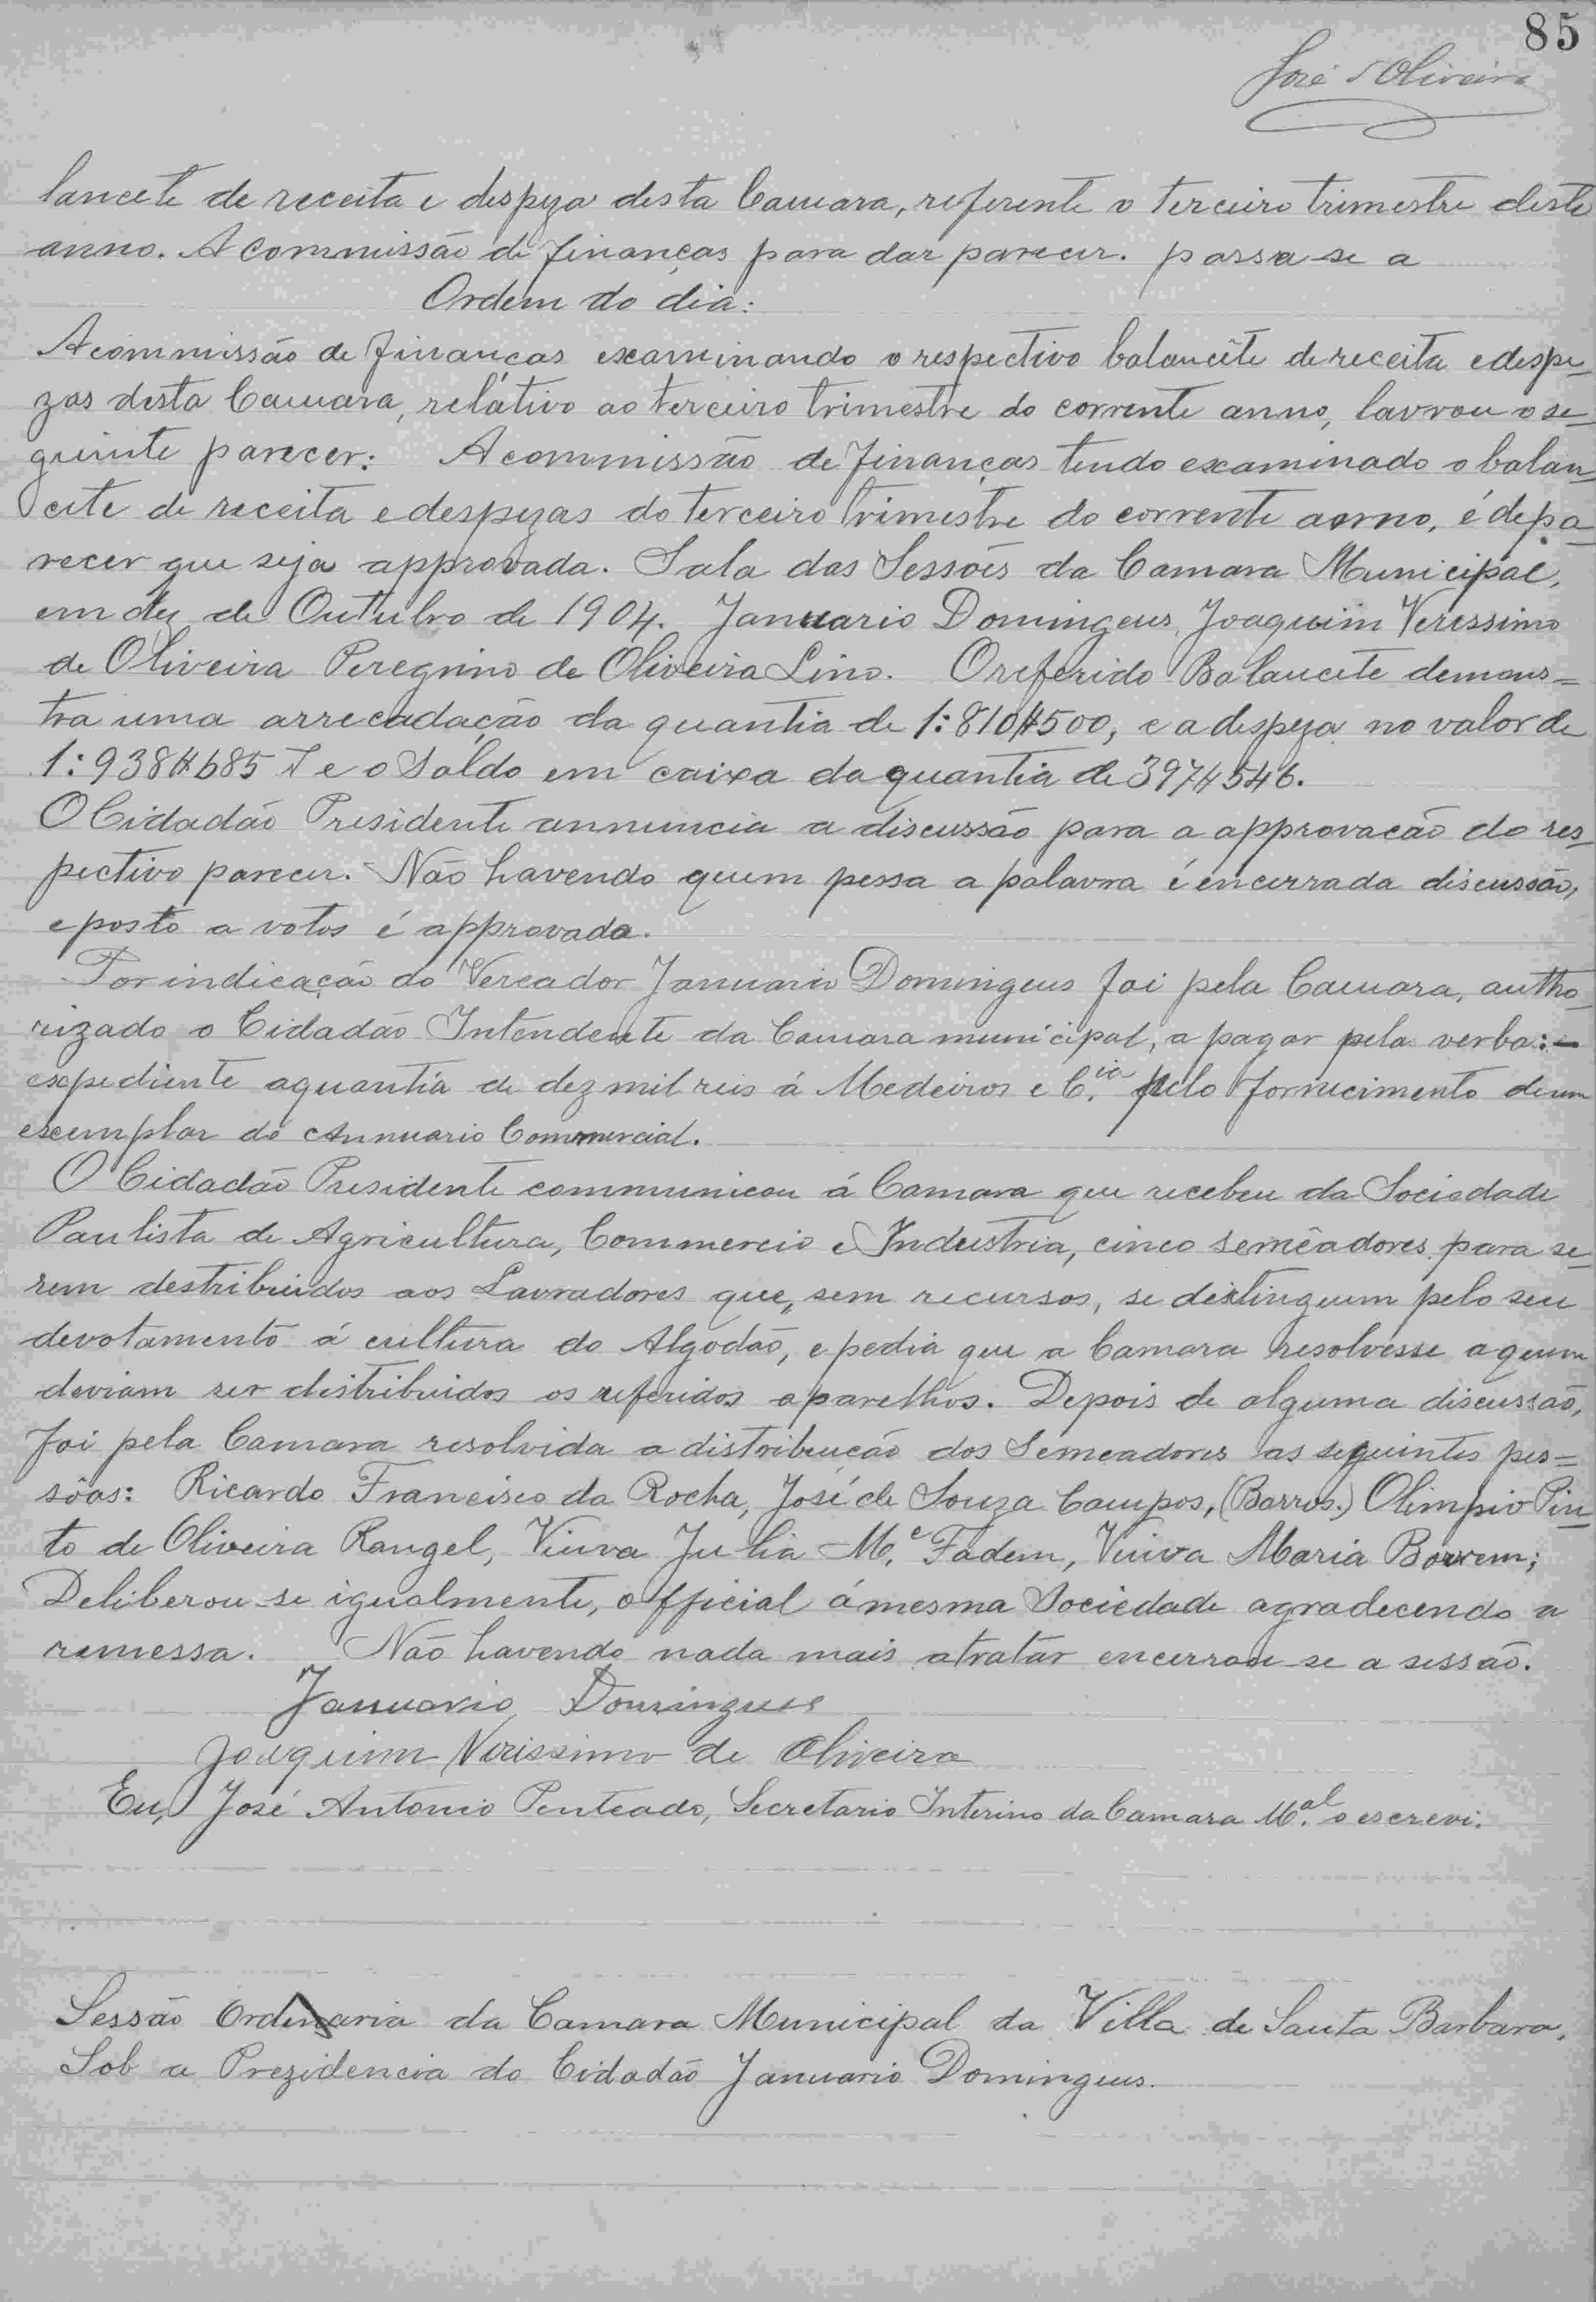 85
José d'Oliveira
lancete de receita e despeza desta Camara, referente o terceiro trimestre deste
anno. A Commissão de finanças para dar parecer. passa-se a
Ordem do dia:
A commissão de finanças examinando o respectivo balancête de receita e despe=
zas desta Camara, relátivo ao terceiro trimestre do corrente anno, lavrou o se=
guinte parecer: A commissão de finanças tendo examinado o balan=
cete de receita e despezas do terceiro trimestre do corrente anno, é de pa=
recer que seja approvada. Sala das Sessões da Camara Municipal,
em dez de Outubro de 1904. Januario Domingues, Joaquim Verissimo
de Oliveira Peregrino de Oliveira Lino. O referido Balancete demons=
tra uma arrecadação da quantia de 1:810$500, e a despeza no valor de
1:938$685 e o Saldo em caixa da quantia de 397$546.
O Cidadão Presidente annuncia a discussão para a approvacão do res=
pectivo parecer. Não havendo quem pessa a palavra é encerrada discussão,
e posto a votos é approvada.
Por indicação do Vereador Januario Domingues foi pela Camara, autho=
rizado o Cidadão Intendente da Camara municipal, a pagar pela verba:-
expediente a quantia de dez mil reis á Medeiros e C.ia pelo fornecimento de um
exemplar do Annuario Commercial.
O Cidadão Presidente communicou á Camara que recebeu da Sociedade
Paulista de Agricultura, Commercio e Industria, cinco semêadores para se=
rem destribuidos aos Lavradores que, sem recursos, se distinguem pelo seu
devotamento á cultura do Algodão, e pedia que a Camara resolvesse a quem
deviam ser distribuidos os referidos aparelhos. Depois de alguma discussão,
foi pela Camara resolvida a distribuição dos Semeadores as seguintes pes=
sôas: Ricardo Francisco da Rocha, José de Souza Campos, (Barros.) Olimpio Pin=
to de Oliveira Rangel, Viuva Julia M.c Fadem, Viuva Maria Bowem;
Deliberou-se igualmente, official á mesma Sociedade agradecendo a
remessa. Não havendo nada mais a tratar encerrou-se a sessão.
Januario Domingues
Joaquim Verissimo de Oliveira
Eu, José Antonio Penteado, Secretario Interino da Camara M.al o escrevi.
Sessão Ordinaria da Camara Municipal da Villa de Santa Barbara,
Sob a Prezidencia do Cidadão Januario Domingues.